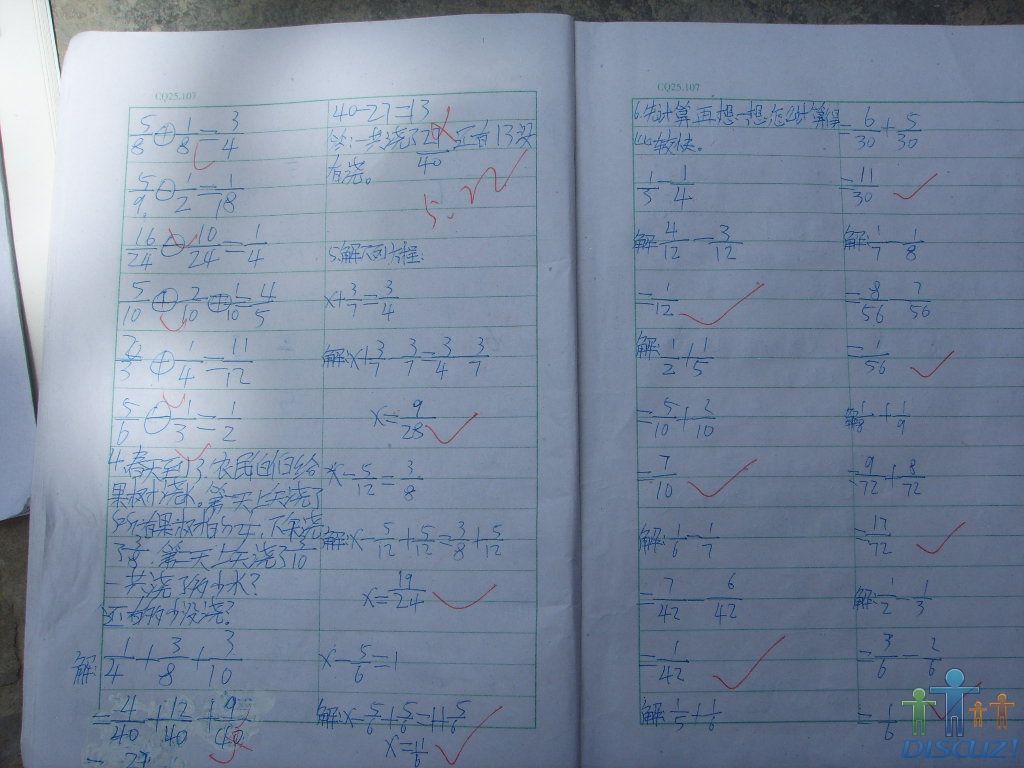 CQ25.107
5/8 ⊕ 1/8 = 3/4
5/9 ⊖ 1/2 = 1/18
16/24 ⊖ 10/24 = 1/4
5/10 ⊕ 2/10 ⊕ 1/10 = 4/5
2/3 ⊕ 1/4 = 11/12
5/6 ⊖ 1/3 = 1/2
4.春天到了,农民伯伯给
果树浇水,第一天上午浇了
所有果树的1/4,下午浇
了3/8,第二天上午浇了3/10
一共浇了多少水?
还有多少没浇?
解:1/4+3/8+3/10
=4/40+12/40+9/40
40-27=13
答:一共浇了27/40,还有13没
有浇。
5.解下面方程:
x+3/7=3/4
解:x+3/7-3/7=3/4-3/7
x=9/28
x-5/12=3/8
解:x-5/12+5/12=3/8+5/12
x=19/24
x-5/6=1
解:x-5/6+5/6=1+5/6
x=11/6
CQ25.107
6.先计算,再想一想,怎么计算得
比较快。
1/3-1/4
解:4/12-3/12
=1/12
解:1/2+1/5
=5/10+2/10
=7/10
解:1/6-1/7
=7/42-6/42
=1/42
解:1/5+1/6
=6/30+5/30
=11/30
解:1/7-1/8
=8/56-7/56
=1/56
解:1/8+1/9
=9/72+8/72
=17/72
解:1/2-1/3
=3/6-2/6
=1/6
DISCUZ!